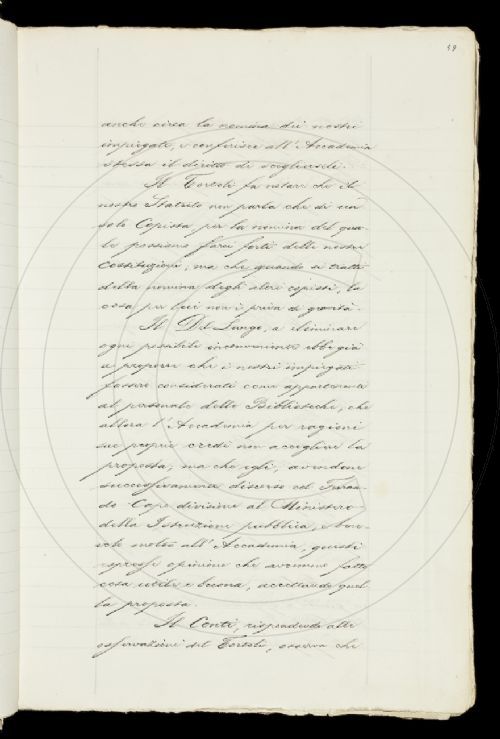 59
anche circa la nomina dei nostri
impiegati, e conferisce all'Accademia
stessa il diritto di sceglierseli.
Il Tortoli fa notare che il
nostro Statuto non parla che di un
solo Copista per la nomina del qua-
le possiamo farci forti delle nostre
Costituzioni; ma che quando si tratti
della nomina degli altri copisti, la
cosa per lui non è priva di gravità.
Il Del Lungo, a eliminare
ogni possibile inconveniente ebbe già
a proporre che i nostri impiegati
fossero considerati come appartenenti
al personale delle Biblioteche; che
allora l'Accademia per ragioni
sue proprie credè non accogliere la
proposta; ma che egli, avendone
successivamente discorso col
do Capo divisione al Ministero
della Istruzione pubblica,
molto all'Accademia, questi
espresse opinione che avremmo fatto
cosa utile e buona, accettando quel-
la proposta.
Il Conti, rispondendo alle
osservazioni del Tortoli, osserva che